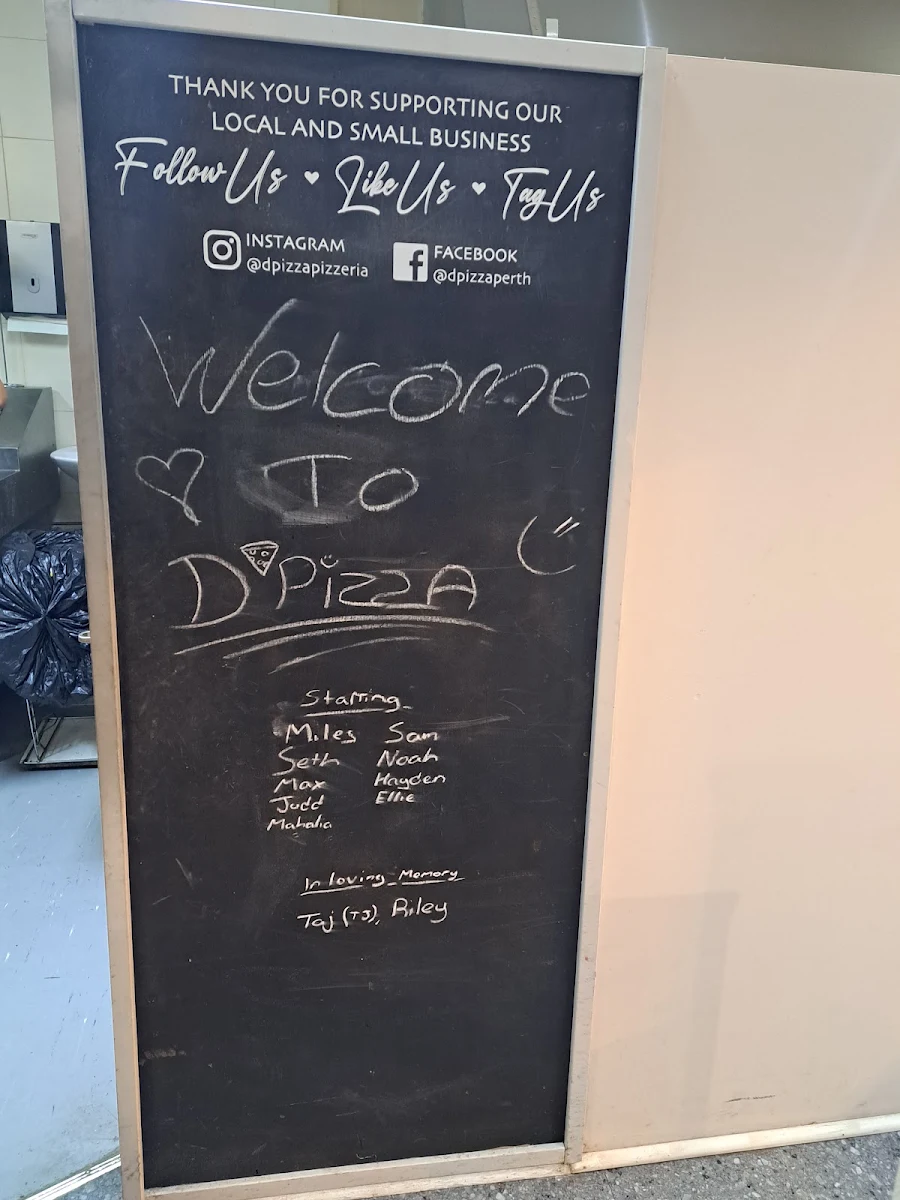 THANK YOU FOR SUPPORTING OUR
LOCAL AND SMALL BUSINESS
Follow Us ♥ Like Us ♥ Tag Us
INSTAGRAM
@dpizzapizzeria
FACEBOOK
@dpizzaperth
Welcome
To
D'Pizza
Starring
Miles Sam
Seth Noah
Max Hayden
Judd Ellie
Mahalia
In loving Memory
Taj (TJ), Riley